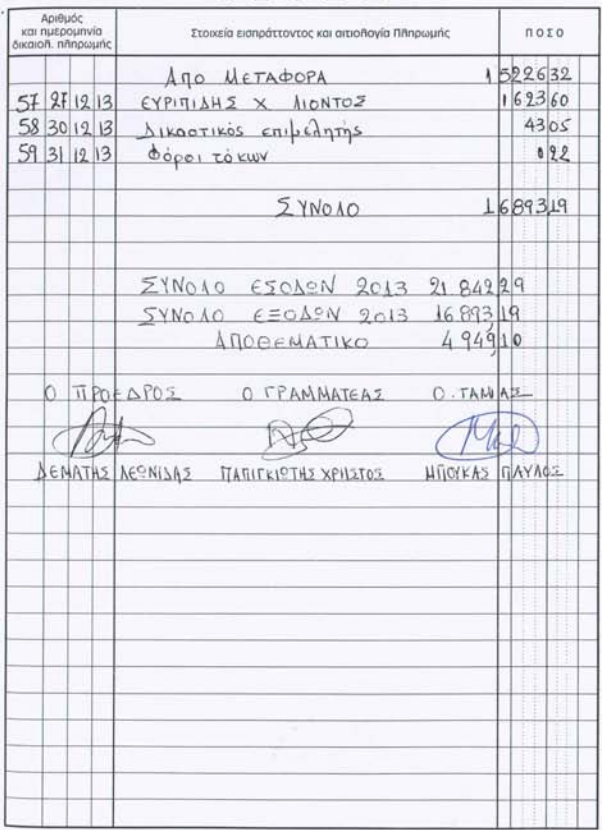 Αριθμός και ημερομηνία δικαιολ. πληρωμής Στοιχεία εισπράττοντος και αιτιολογία Πληρωμής ΠΟΣΟ
Απο ΜΕΤΑΦΟΡΑ 1522632
57 27 12 13 ΕΥΡΙΠΙΔΗΣ Χ ΛΙΟΝΤΟΣ 162360
58 30 12 13 Δικαστικός επιμελητής 4305
59 31 12 13 Φόροι τόκων 022
ΣΥΝΟΛΟ 1689319
ΣΥΝΟΛΟ ΕΣΟΔΩΝ 2013 21.84229
ΣΥΝΟΛΟ ΕΞΟΔΩΝ 2013 16.893,19
ΑΠΟΘΕΜΑΤΙΚΟ 4 949,10
Ο ΠΡΟΕΔΡΟΣ Ο ΓΡΑΜΜΑΤΕΑΣ Ο. ΤΑΜΙΑΣ
ΔΕΜΑΤΗΣ ΛΕΩΝΙΔΑΣ ΠΑΠΙΓΚΙΩΤΗΣ ΧΡΗΣΤΟΣ ΜΠΟΥΚΑΣ ΠΑΥΛΟΣ